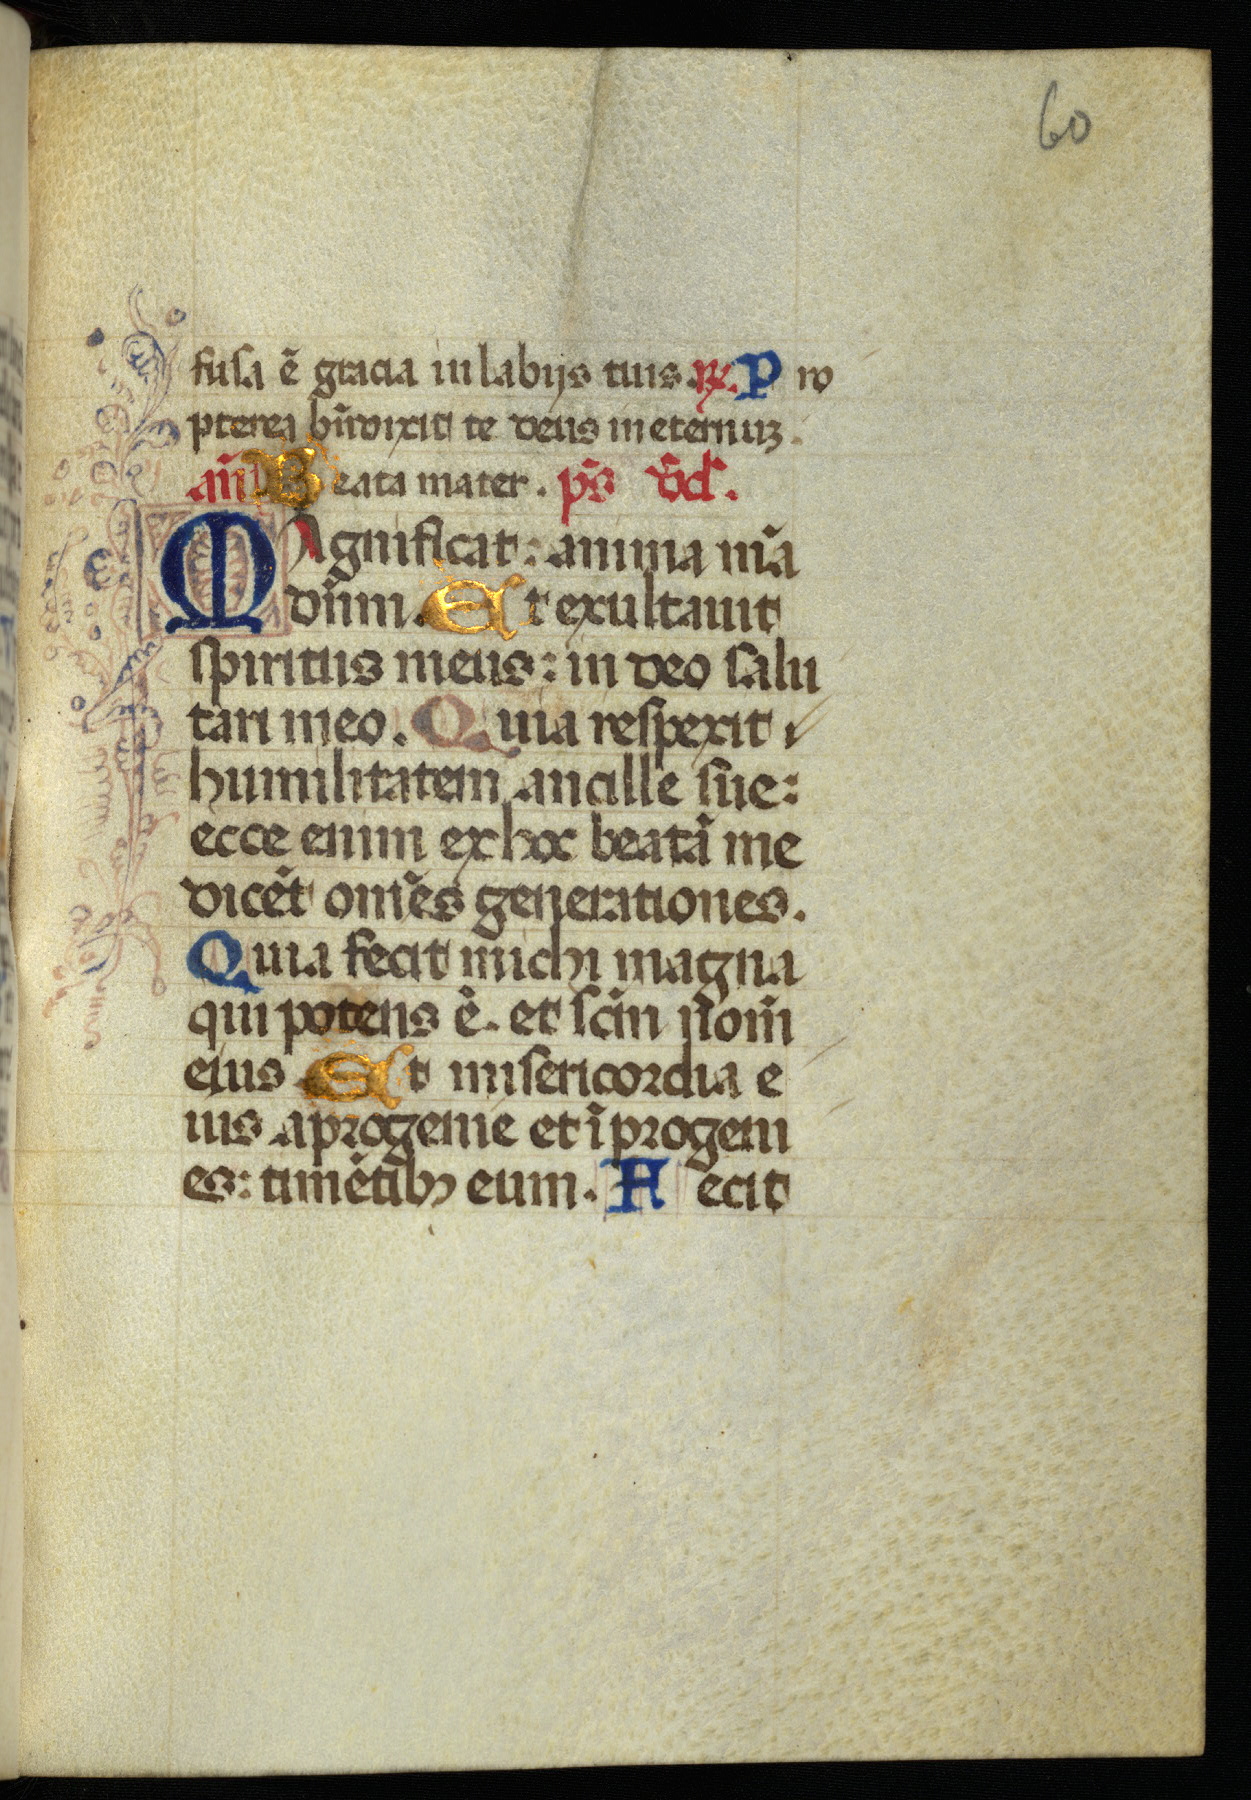 60
fusa ē gracia in labijs tuis. ℟. P ro
pterea bn̄dixit te deus in eternuꝫ.
an̄ Beata mater. ps̄ d̄d.
MAgnificat: anima m̄a
dn̄m. Et exultauit
spiritus meus: in deo salu
tari meo. Quia respexit
humilitatem ancille sue:
ecce enim ex hoc beatā me
dicēt om̄es generationes.
Quia fecit michi magna
qui potens ē. et sc̄m nom̄
eius Et misericordia e
ius a progenie et ī progeni
es: timētibꝰ eum. F ecit